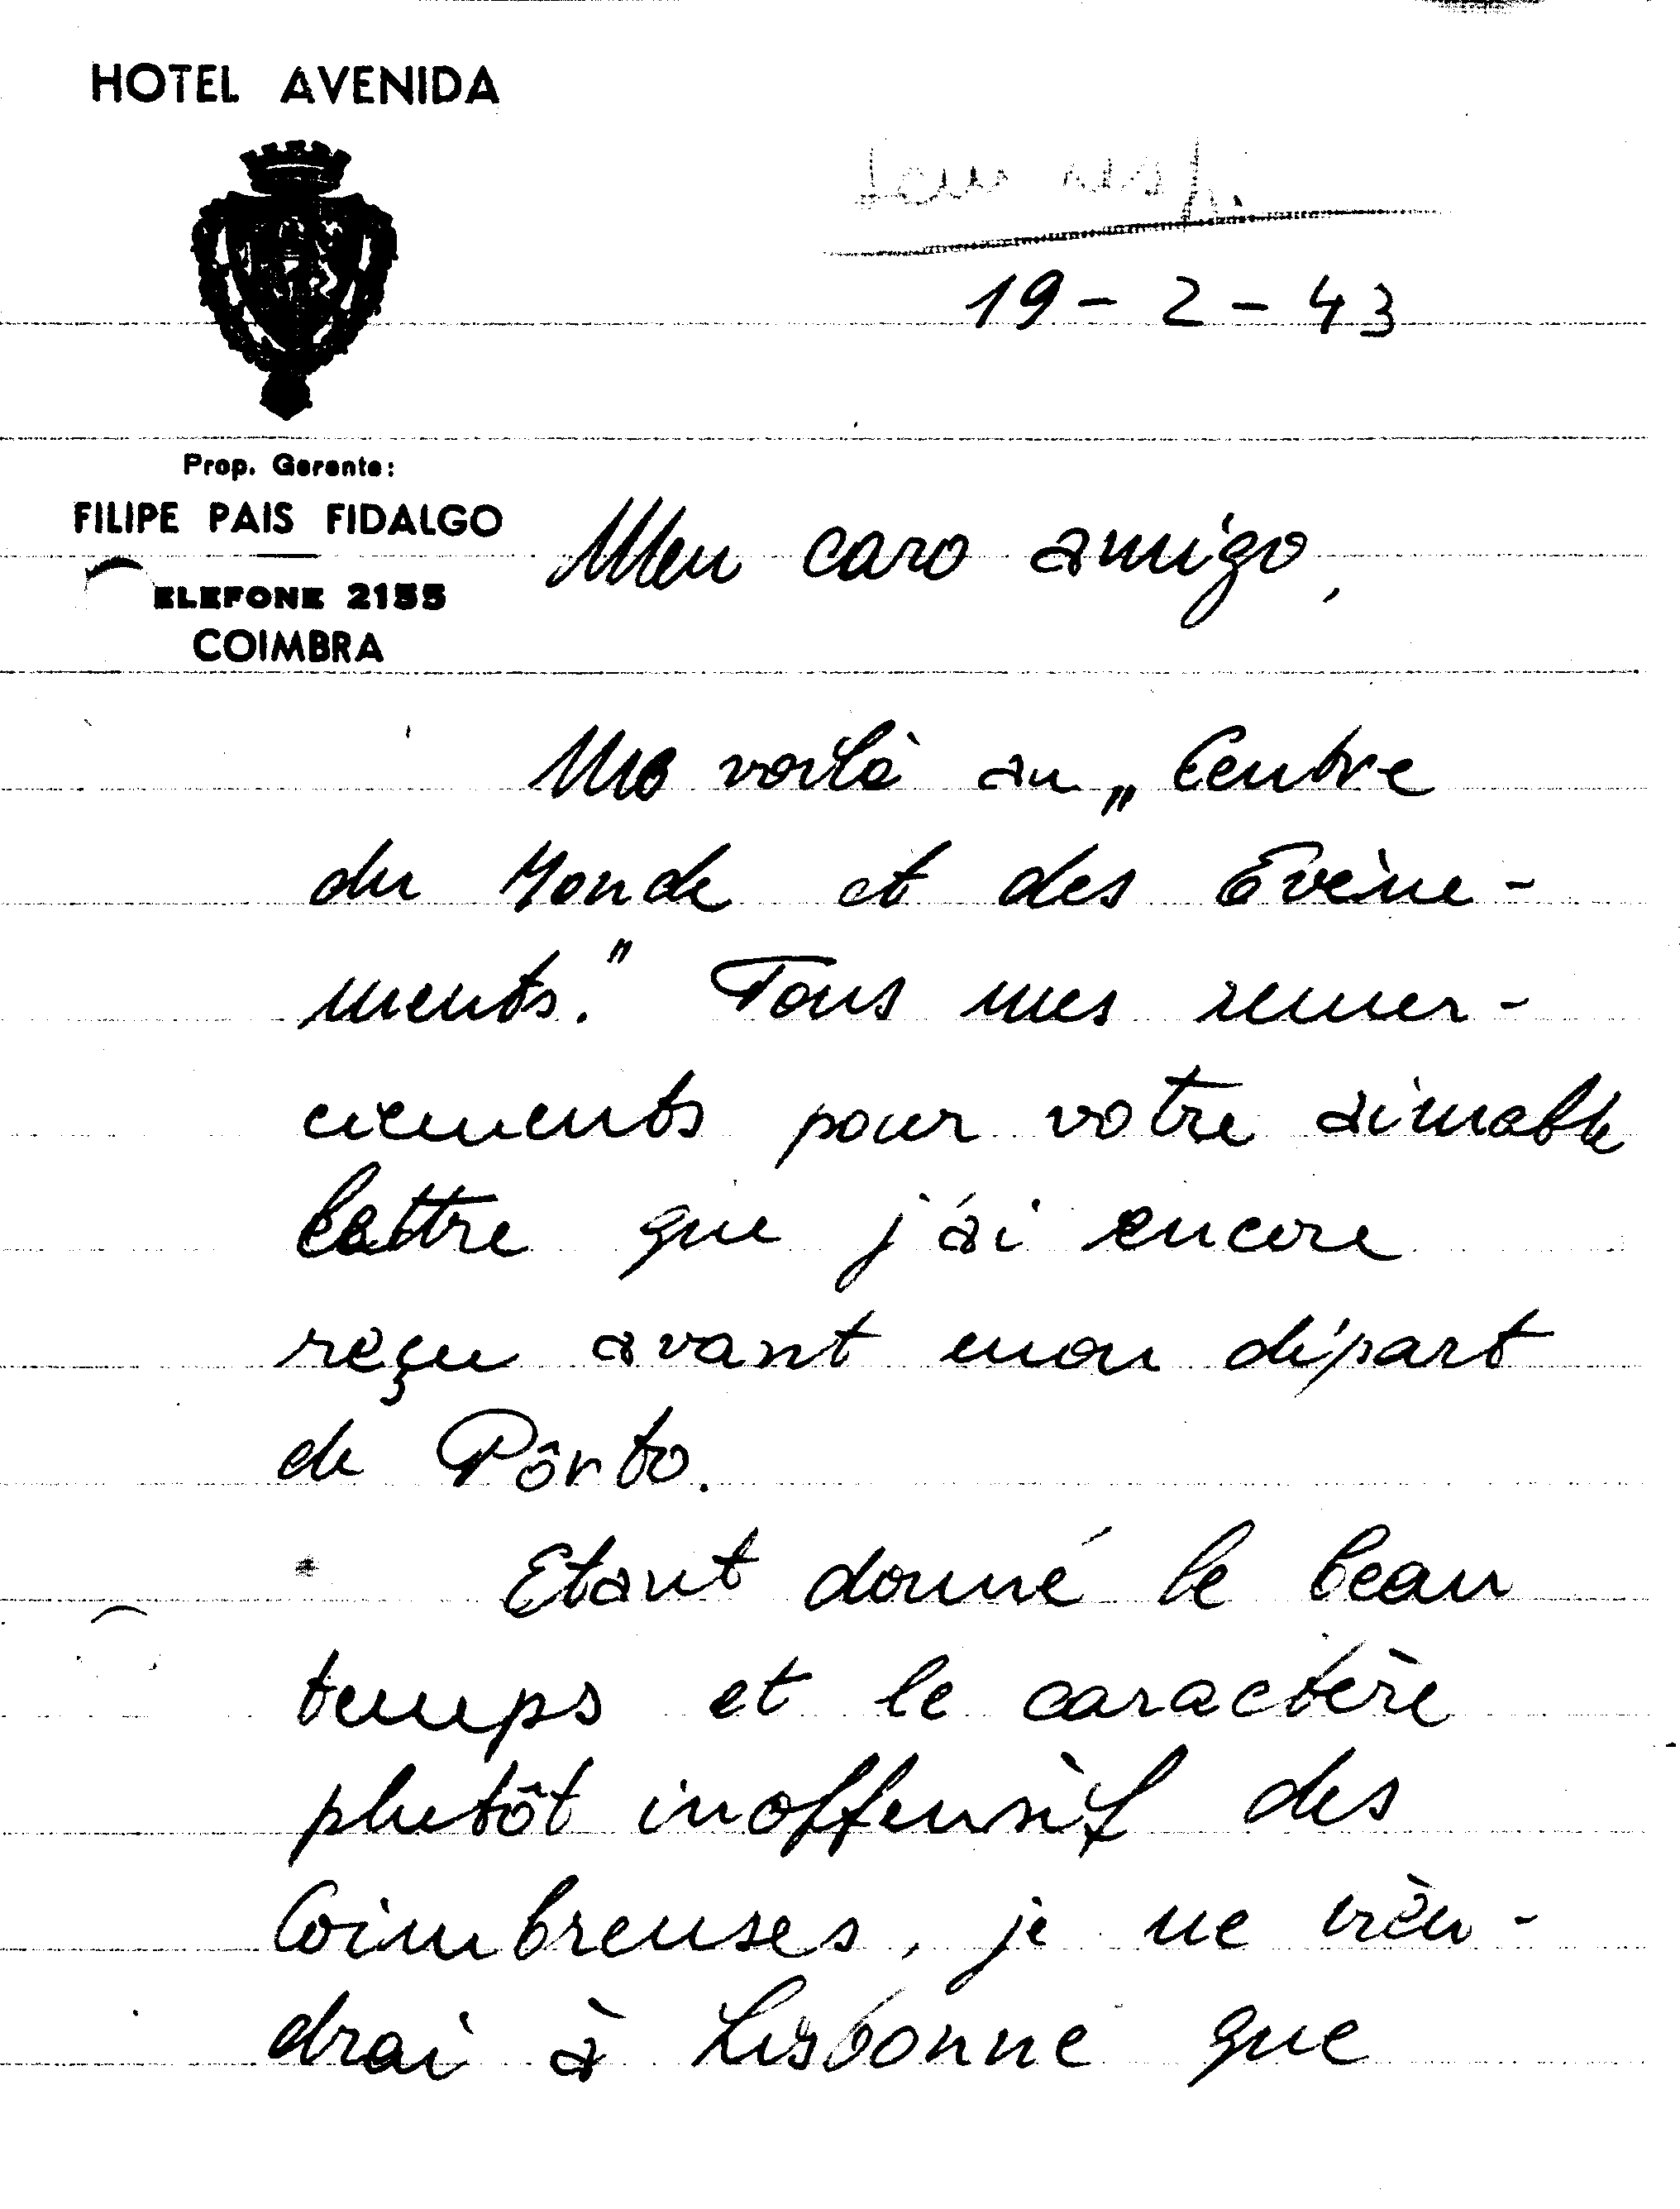 HOTEL AVENIDA
19-2-43
Prop. Gerente:
FILIPE PAIS FIDALGO
ELEFONE 2155
COIMBRA
Meu caro amigo,
Me voilà au „Centre
du Monde et des Evène-
ments." Tous mes remer-
ciements pour votre aimable
lettre que j'ai encore
reçu avant mon départ
de Pôrto.
Etant donné le beau
temps et le caractère
plutôt inoffensif des
Coimbreuses, je ne vien-
drai à Lisbonne que